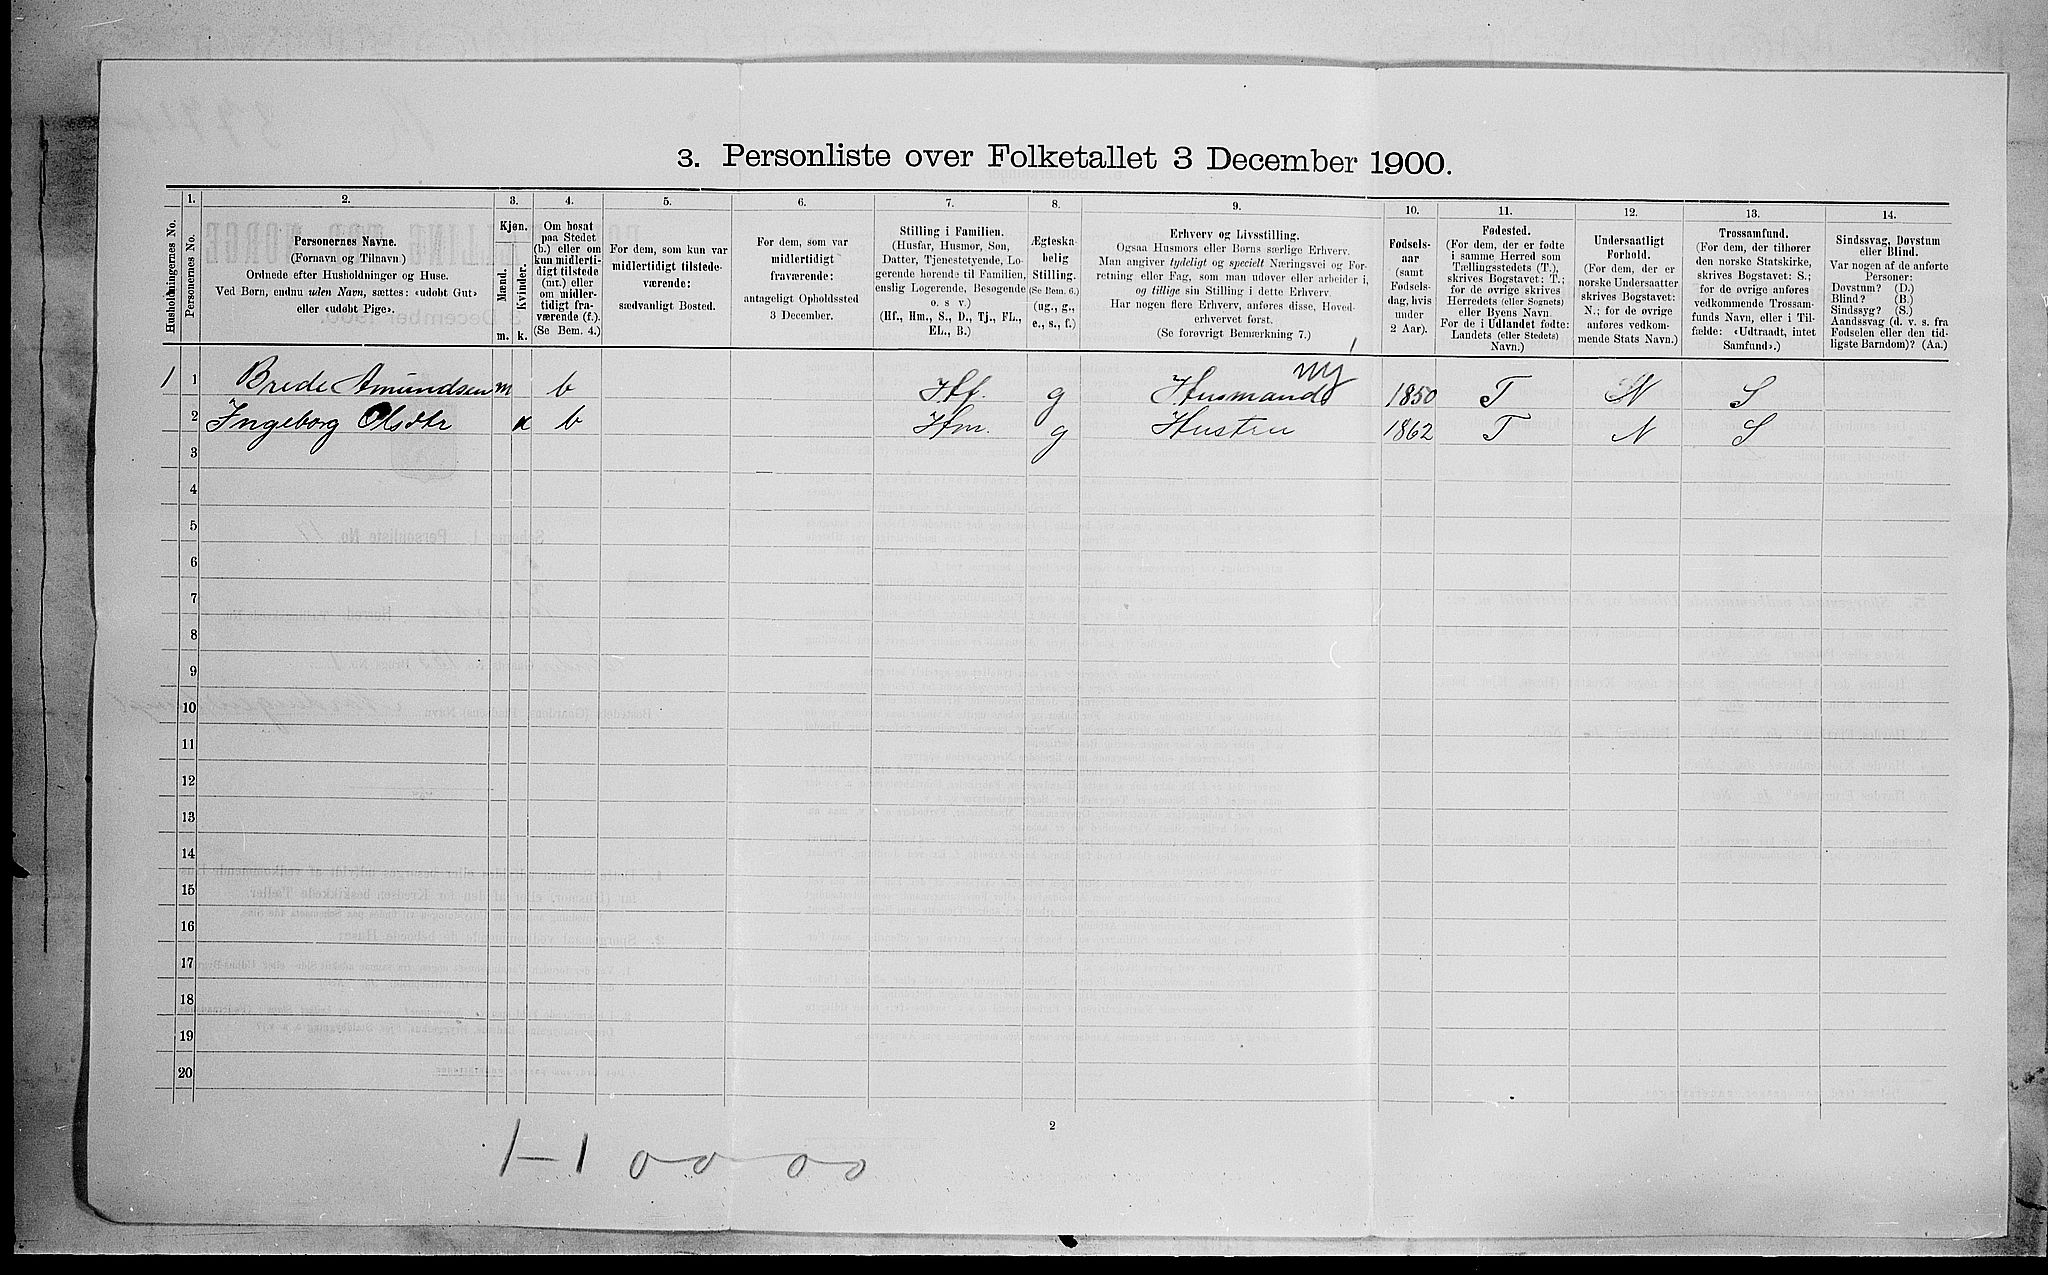 3. Personliste over Folketallet 3 December 1900.
Husholdningernes No.
1.
Personernes No.
2.
Personernes Navne.
(Fornavn og Tilnavn.)
Ordnede efter Husholdninger og Huse.
Ved Børn, endnu uden Navn, sættes: «udøbt Gut»
eller «udøbt Pige».
3.
Kjøn.
Mænd.
Kvinder.
m. k.
4.
Om bosat
paa Stedet
(b.) eller om
kun midlerti-
digt tilstede
(mt.) eller
om midler-
tidigt fra-
værende (f.).
(Se Bem. 4.)
5.
For dem, som kun var
midlertidigt tilstede-
værende:
sædvanligt Bosted.
6.
For dem, som var
midlertidigt
fraværende:
antageligt Opholdssted
3 December.
7.
Stilling i Familien.
(Husfar, Husmor, Søn,
Datter, Tjenestetyende, Lo-
gerende hørende til Familien,
enslig Logerende, Besøgende
o. s v.)
(Hf., Hm., S., D., Tj., FL.,
EL., B.)
8.
Ægteska-
belig
Stilling.
(Se Bem. 6.)
(ug., g.,
e., s., f.)
9.
Erhverv og Livsstilling.
Ogsaa Husmors eller Børns særlige Erhverv.
Man angiver tydeligt og specielt Næringsvei og For-
retning eller Fag, som man udøver eller arbeider i,
og tillige sin Stilling i dette Erhverv.
Har nogen flere Erhverv, anføres disse, Hoved-
erhvervet først.
(Se forøvrigt Bemærkning 7.)
10.
Fødsels-
aar
(samt
Fødsels-
dag, hvis
under
2 Aar).
11.
Fødested.
(For dem, der er fødte
i samme Herred som
Tællingsstedets (T.),
skrives Bogstavet: T.;
for de øvrige skrives
Herredets (eller Sognets)
eller Byens Navn.
For de i Udlandet fødte:
Landets (eller Stedets)
Navn.)
12.
Undersaatligt
Forhold.
(For dem, der er
norske Undersaatter
skrives Bogstavet:
N.; for de øvrige
anføres vedkom-
mende Stats Navn.)
13.
Trossamfund.
(For dem, der tilhører
den norske Statskirke,
skrives Bogstavet: S.;
for de øvrige anføres
vedkommende Trossam-
funds Navn, eller i Til-
fælde: «Udtraadt, intet
Samfund».)
14.
Sindssvag, Døvstum
eller Blind.
Var nogen af de anførte
Personer:
Døvstum? (D.)
Blind? (B.)
Sindssyg? (S.)
Aandssvag (d. v. s. fra
Fødselen eller den tid-
ligste Barndom)? (Aa.)
1 1 Brede Amundsen m b Hf. g Husmand 1850 T N S
2 Ingeborg Olsdtr k b Hm. g Hustru 1862 T N S
3
4
5
6
7
8
9
10
11
12
13
14
15
16
17
18
19
20
2
1-1 00 00